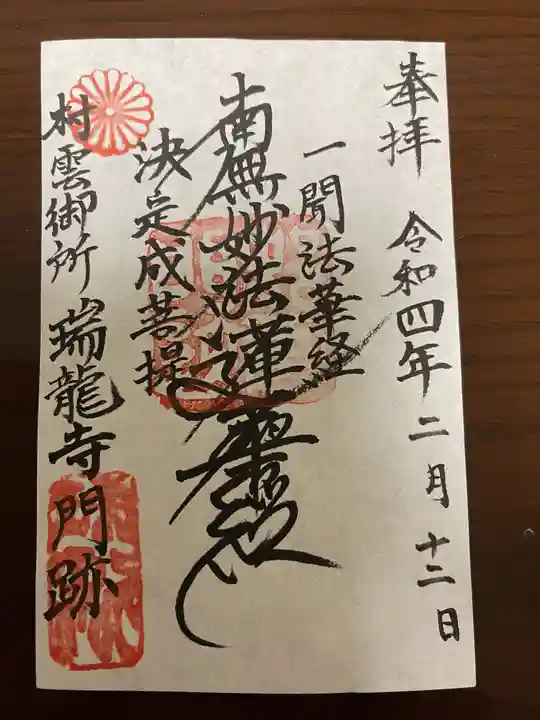 奉拝 令和四年二月十二日
一聞法華経
南無妙法蓮華経
決定成菩提
村雲御所 瑞龍寺門跡